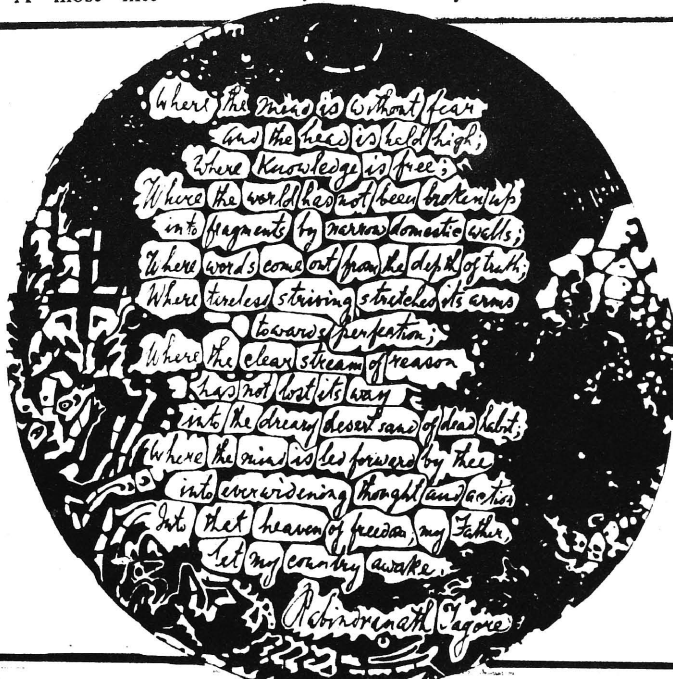 most
Where the mind is without fear
and the head is held high;
Where knowledge is free;
Where the world has not been broken up
into fragments by narrow domestic walls;
Where words come out from the depth of truth;
Where tireless striving stretches its arms
towards perfection;
Where the clear stream of reason
has not lost its way
into the dreary desert sand of dead habit;
Where the mind is led forward by thee
into everwidening thought and action
Into that heaven of freedom, my Father,
let my country awake.
Rabindranath Tagore